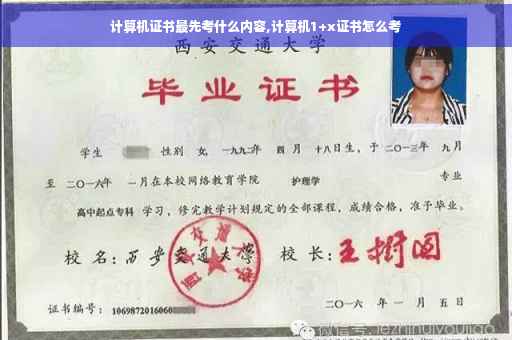 计算机证书最先考什么内容,计算机1+x证书怎么考
西安交通大学
毕业证书
学生 性别 女,一九九二年 四月 十八日生,于二〇一三年 九月
至 二〇一六年 一月在本校网络教育学院 护理学 专业
高中起点专科 学习,修完教学计划规定的全部课程,成绩合格,准予毕业。
校名:西安交通大学 校长:王树国
西安交通大学
证书编号:1069872016060
二〇一六年 一月 五日
微信号:jezhihuiyoujiao